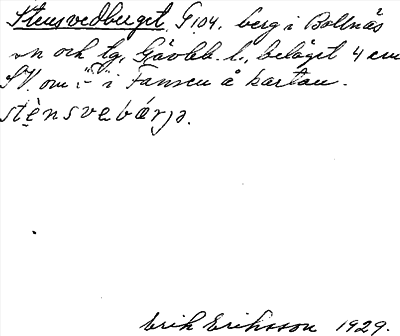 Stensvedberget. G 104. berg i Bollnäs
sn och tg, Gävleb. l., beläget 4 cm
SV. om "-" i Fansen å kartan.
stènsvebárjə.
Erik Eriksson 1929.